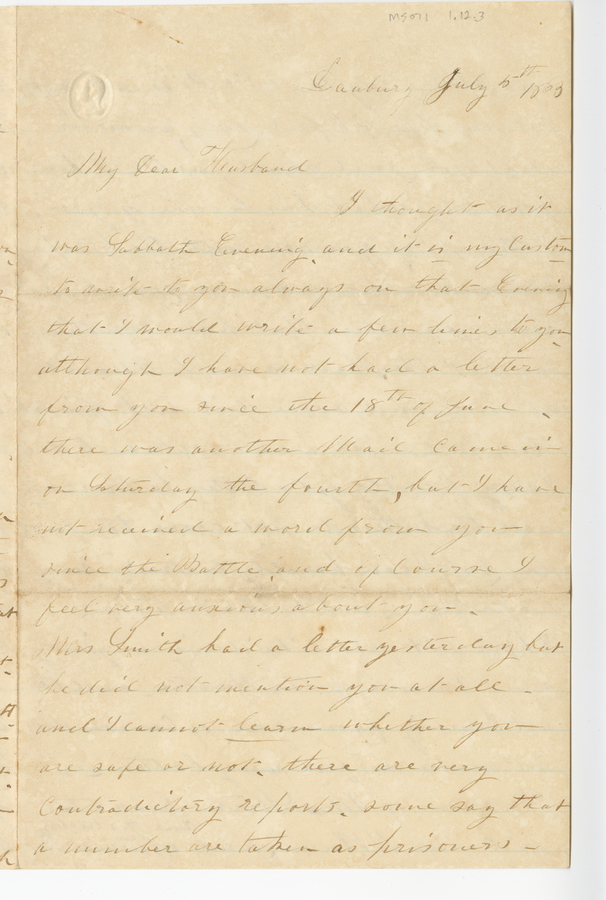 MS071 1.12.3
Danbury July 5th 1863
My Dear Husband
I thought as it
was Sabbath Evening and it is my Custom
to write to you always on that Evening
that I would write a few lines to you
although I have not had a letter
from you since the 18th of June
there was another Mail came in
on Saturday the fourth, but I have
not recieved a word from you
since the Battle and of course I
feel very anxious about you.
Mrs Smith had a letter yesterday but
he did not mention you at all
and I cannot learn whether you
are safe or not. there are very
Contradictory reports. some say that
a number are taken as prisoners